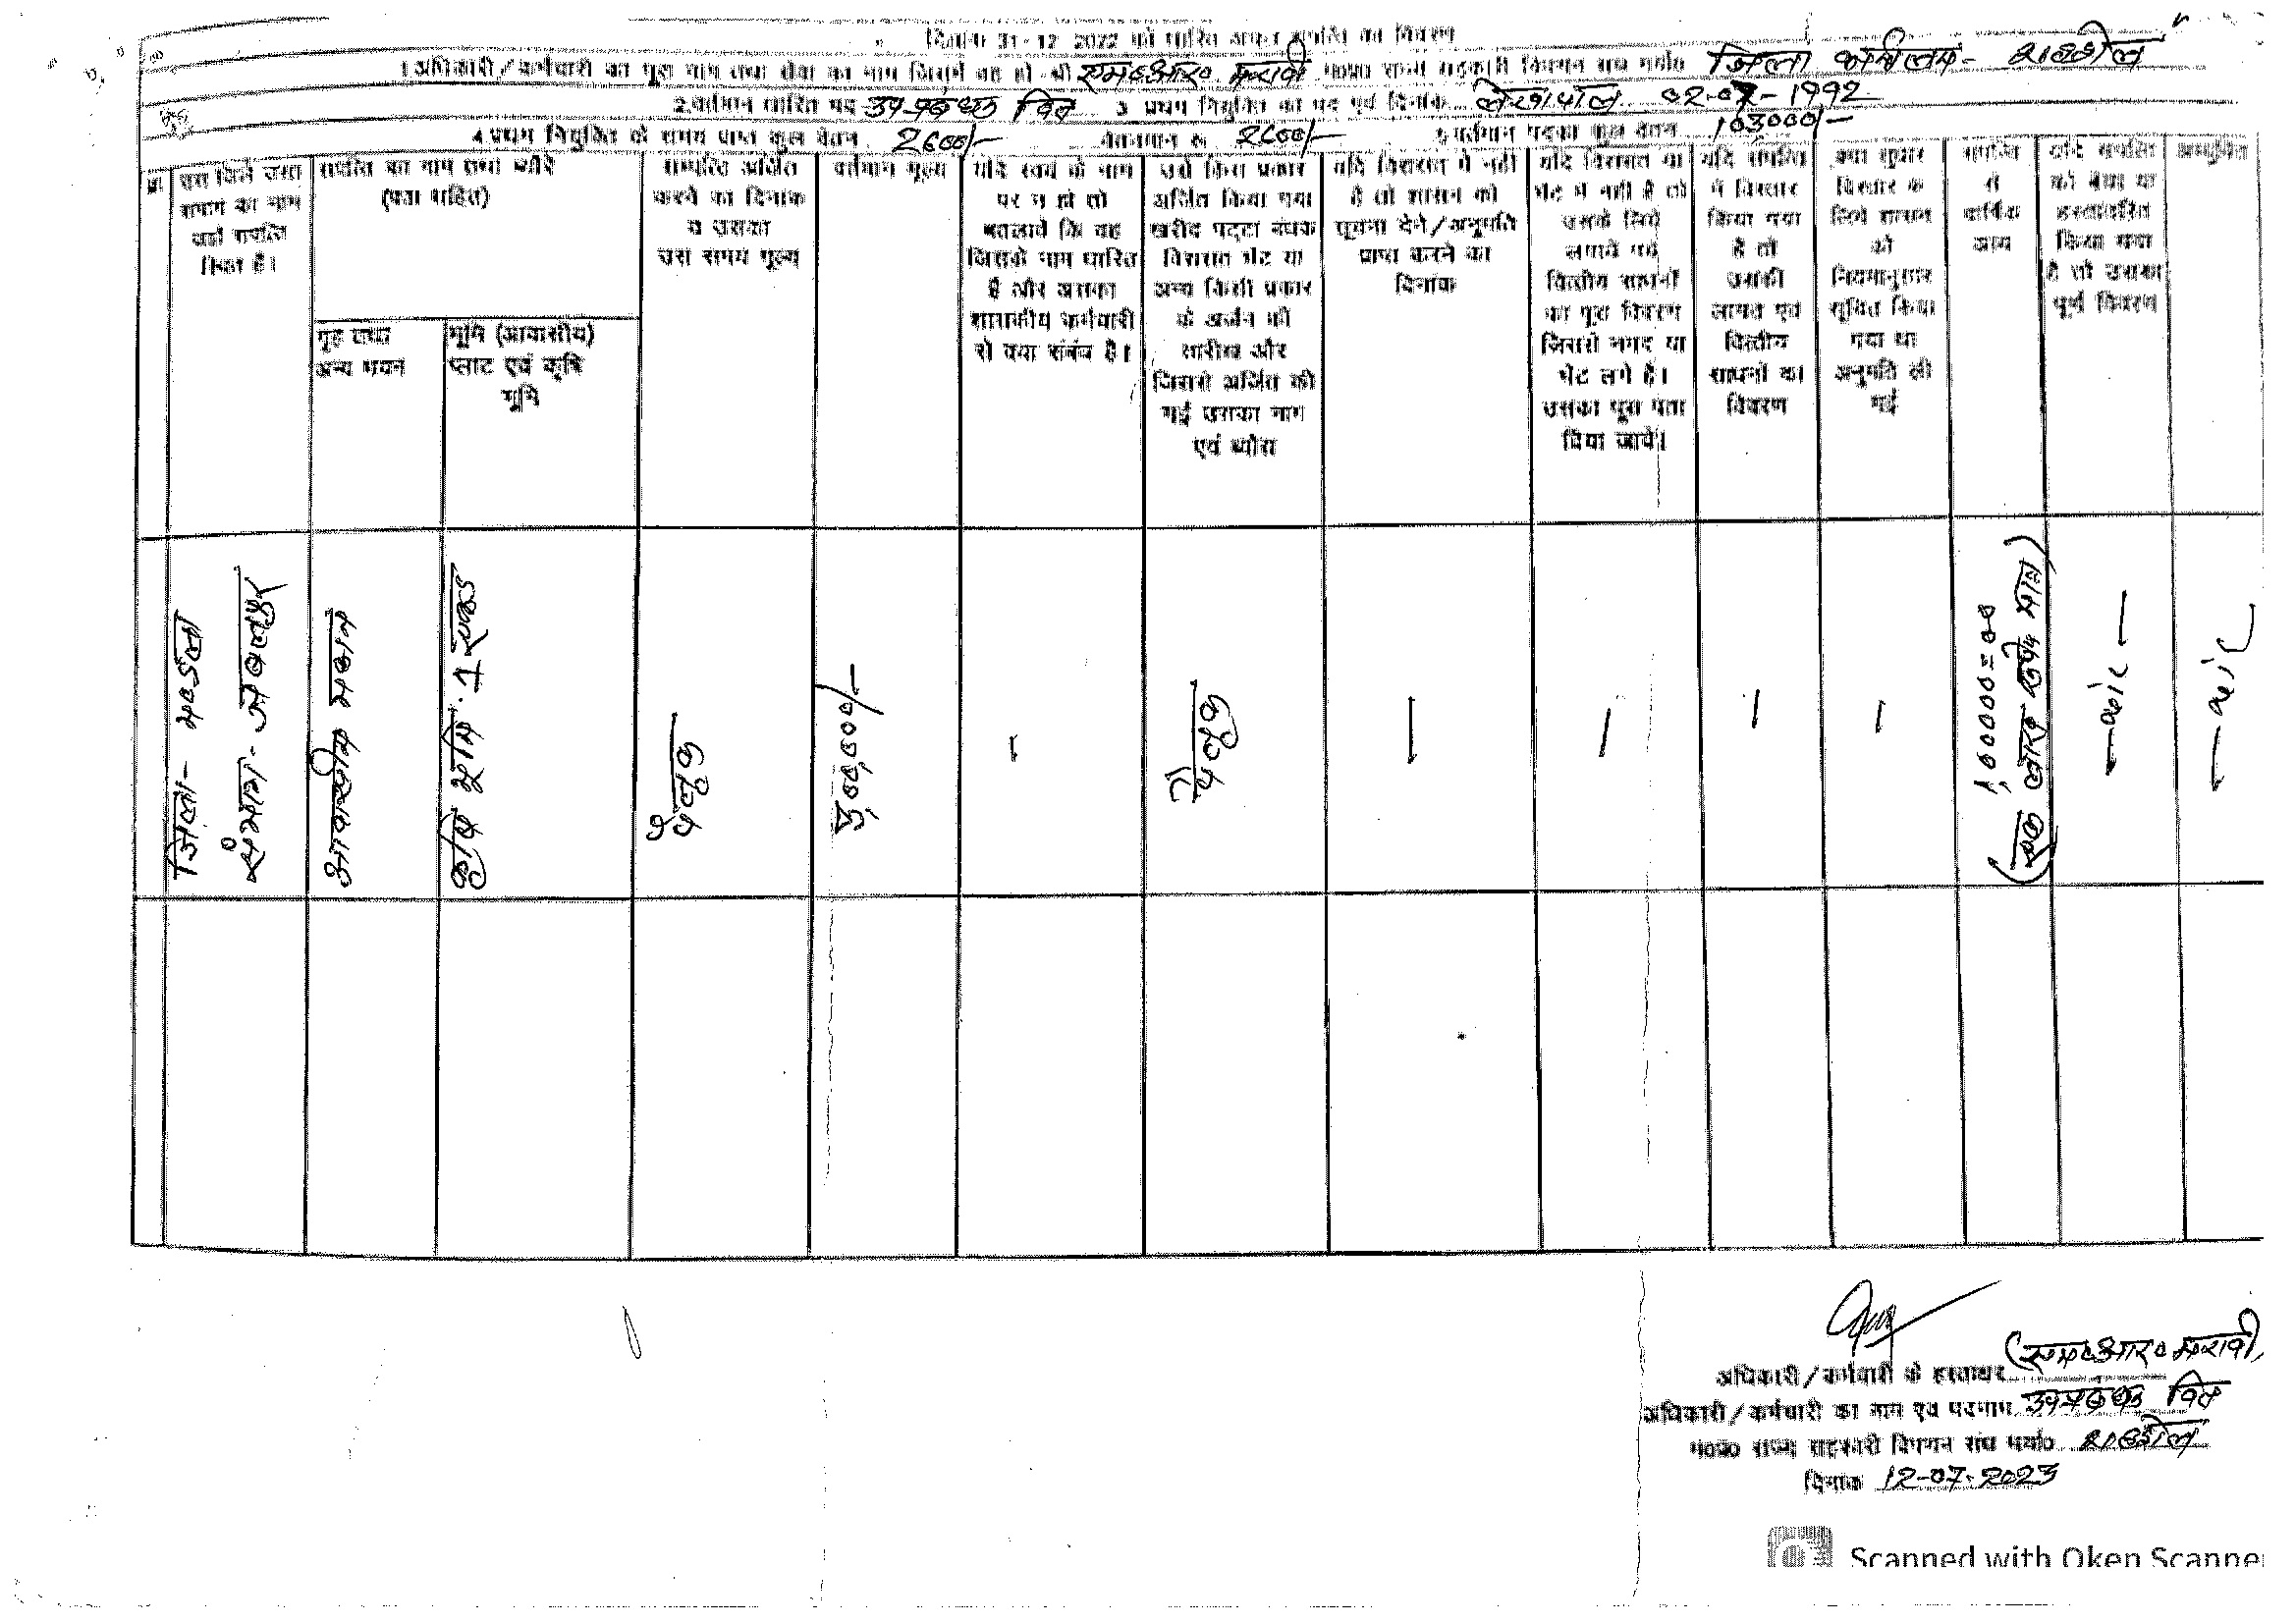 दिनांक 31-12-2022 को धारित अचल संपत्ति का विवरण
1.अधिकारी/कर्मचारी का पूरा नाम तथा सेवा का नाम जिसमें वह हो-श्री एम०आर० मरावी म0प्र0 राज्य सहकारी विपणन संघ मर्या0 जिला कार्यालय- शहडोल
2.वर्तमान धारित पद उपप्रबंधक वित्त 3 प्रथम नियुक्ति का पद एवं दिनांक लेखापाल 02-07-1992
4.प्रथम नियुक्ति के समय प्राप्त कुल वेतन 2600/- वेतनमान रू 2600/- 5 वर्तमान पदका कुल वेतन 103000/-
उस जिले उस संभाग का नाम जहाँ संपत्ति स्थित है।
संपत्ति का नाम तथा ब्यौरे (पता सहित)
गृह तथा अन्य भवन
भूमि (आवासीय) प्लाट एवं कृषि भूमि
सम्पत्ति अर्जित करने का दिनांक व उसका उस समय मूल्य
वर्तमान मूल्य
यदि स्वयं के नाम पर न हो तो बतलावे कि वह जिसके नाम धारित है और उसका शासकीय कर्मचारी से क्या संबंध है।
उसे किस प्रकार अर्जित किया गया खरीद पट्टा बंधक विरासत भेंट या अन्य किसी प्रकार के अर्जन की तारीख और जिससे अर्जित की गई उसका नाम एवं ब्यौरा
यदि विरासत में नहीं है तो शासन को सूचना देने/अनुमति प्राप्त करने का दिनांक
यदि विरासत या भेंट में नहीं है तो उसके लिये लगाये गये वित्तीय साधनों का पूरा विवरण जिससे नगद या भेंट लगे है। उसका पूरा पता दिया जावे।
यदि संपत्ति में विस्तार किया गया है तो उसकी लागत एवं वित्तीय साधनों का विवरण
क्या सुधार विस्तार के लिये शासन को नियमानुसार सूचित किया गया था अनुमति ली गई
संपत्ति से वार्षिक आय
यदि संपत्ति को बेचा या हस्तांतरित किया गया है तो उसका पूर्ण विवरण
अभ्युक्ति
जिला- मण्डला
संभाग- जबलपुर
आवासीय मकान
कृषि भूमि. 1 एकड़
पैतृक
5,00,000/-
-
पैतृक
-
-
-
-
1,00000=00
(एक लाख रुपये मात्र)
-nil-
-nil-
(एम०आर० मरावी)
अधिकारी/कर्मचारी के हस्ताक्षर
अधिकारी/कर्मचारी का नाम एवं पदनाम उपप्रबंधक वित्त
म0प्र0 राज्य सहकारी विपणन संघ मर्या0 शहडोल
दिनांक 12-07-2023
Scanned with Oken Scanner